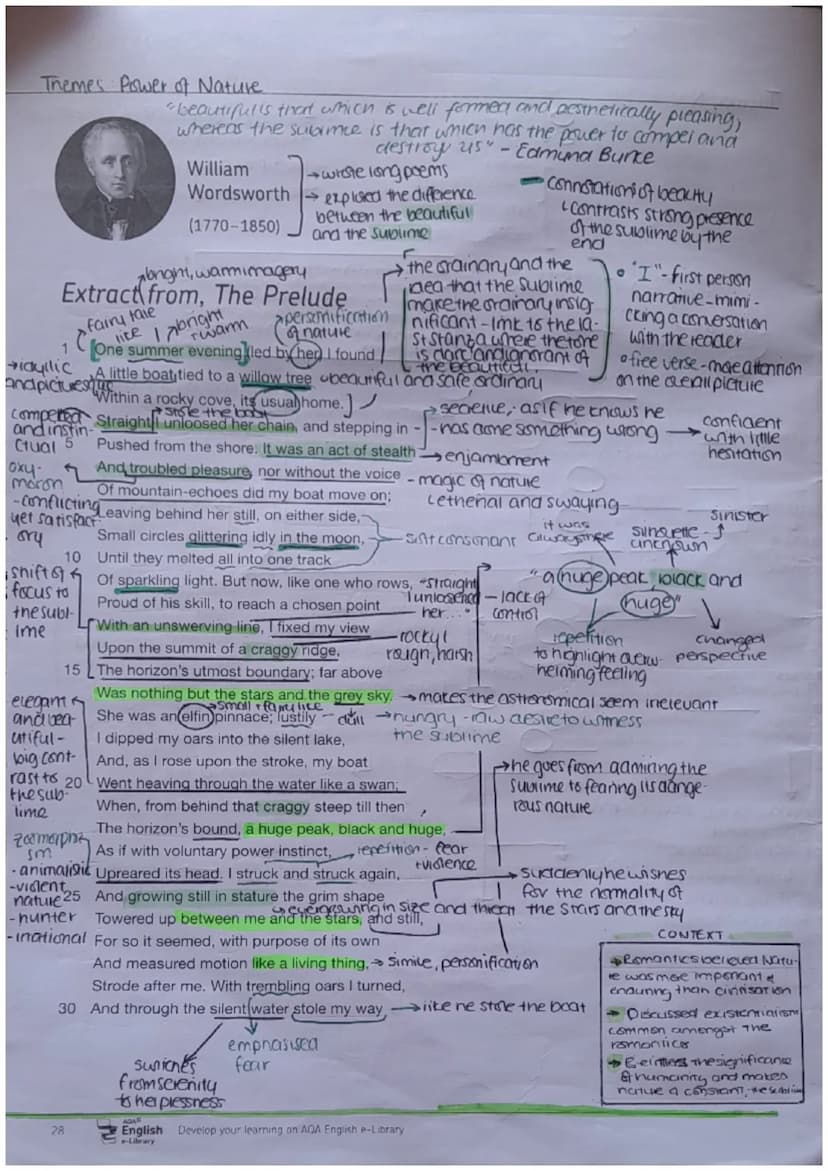 Themes Power of Nature
"beautiful is that which is well formed and aesthetically pleasing,
whereas the sublime is that which has the power to compel and
destroy us" - Edmund Burke
William
Wordsworth
(1770–1850)
→ wrote long poems
→ explored the difference
between the beautiful
and the sublime
connotations of beauty
contrasts strong presence
of the sublime by the
end
bright, warm imagery
Extract from, The Prelude
fairytale
like
bright
warm
personification
of nature
the ordinary and the
idea that the sublime
make the ordinary insig
nificant - link to the la-
st stanza where the tone
is dark and ignorant of
the beautiful
"I" - first person
narrative - mimi-
cking a conversation
with the reader
free verse - more attention
on the overall picture
1 One summer evening (led by her) I found
A little boat tied to a willow tree
beautiful and safe ordinary
→ idyllic
and picturesque
Within a rocky cove, its usual home.
stole the boat
Straight I unloosed her chain, and stepping in
compelled
and instin-
ctual
5 Pushed from the shore. It was an act of stealth
secretive, as if he knows he
has done something wrong → confident
with little
hesitation
→ enjambment
And troubled pleasure, nor without the voice
- magic of nature
oxy-
moron
- conflicting
yet satisfact
ory
Of mountain-echoes did my boat move on;
ethereal and swaying
Leaving behind her still, on either side,
Small circles glittering idly in the moon,
soft consonant
10 Until they melted all into one track
Of sparkling light. But now, like one who rows,
Proud of his skill, to reach a chosen point
"straight
I unloosed
her..."
- lack of
control
it was
always there
silhouette
unknown
sinister
"a huge peak, black and
huge"
repetition
to highlight overw-
helming feeling
changed
perspective
shift of
focus to
the subl-
ime
With an unswerving line, I fixed my view
Upon the summit of a craggy ridge,
rocky
rough, harsh
15 The horizon's utmost boundary; far above
Was nothing but the stars and the grey sky.
→ makes the astronomical seem irrelevant
small + fairy like
She was an elfin pinnace; lustily
dull
→ hungry - raw desire to witness
the sublime
I dipped my oars into the silent lake,
And, as I rose upon the stroke, my boat
20 Went heaving through the water like a swan;
elegant
and bea-
utiful -
big cont-
rast to
the sub-
lime
When, from behind that craggy steep till then
The horizon's bound, a huge peak, black and huge,
he goes from admiring the
sublime to fearing its dange-
rous nature
As if with voluntary power instinct,
repetition - fear
+ violence
Upreared its head. I struck and struck again,
zoomorphi
sm
- animalistic
- violent
nature
- hunter
- irrational
25 And growing still in stature the grim shape
evergrowing in size and threat
Towered up between me and the stars, and still,
suddenly he wishes
for the normality of
the stars and the sky
For so it seemed, with purpose of its own
And measured motion like a living thing,
→ simile, personification
Strode after me. With trembling oars I turned,
30 And through the silent water stole my way
→ like he stole the boat
switches
from serenity
to helplessness
emphasised
fear
CONTEXT
→ Romantics believed Natu-
re was more important &
enduring than civilisation
→ Discussed existentialism
common amongst the
romantics
→ Belittles the significance
of humanity and makes
nature a constant, the sublime
28
AQA
English
e-Library
Develop your learning on AQA English e-Library